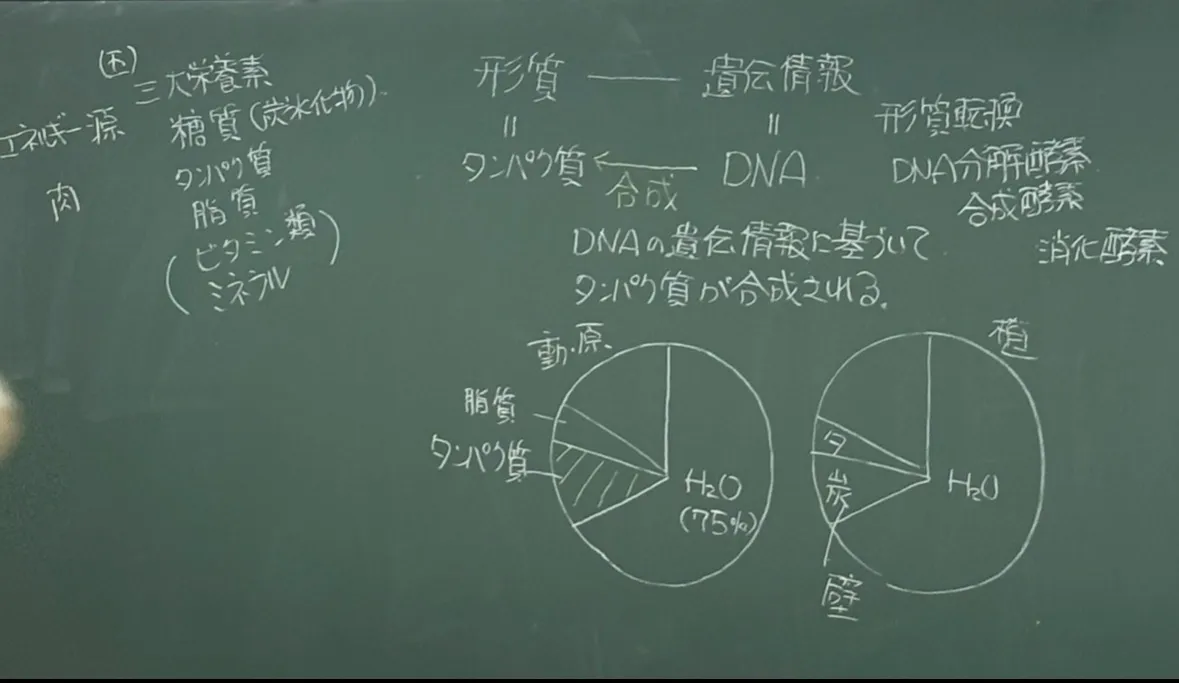 三大栄養素
エネルギー源
糖質(炭水化物)
肉
タンパク質
脂質
(ビタミン類)
ミネラル
形質 ― 遺伝情報
= =
タンパク質 ← DNA
合成
形質転換
DNA分解酵素
合成酵素
消化酵素
DNAの遺伝情報に基づいて
タンパク質が合成される.
動・原
脂質
タンパク質
H₂O
(75%)
植
タ
炭
H₂O
壁